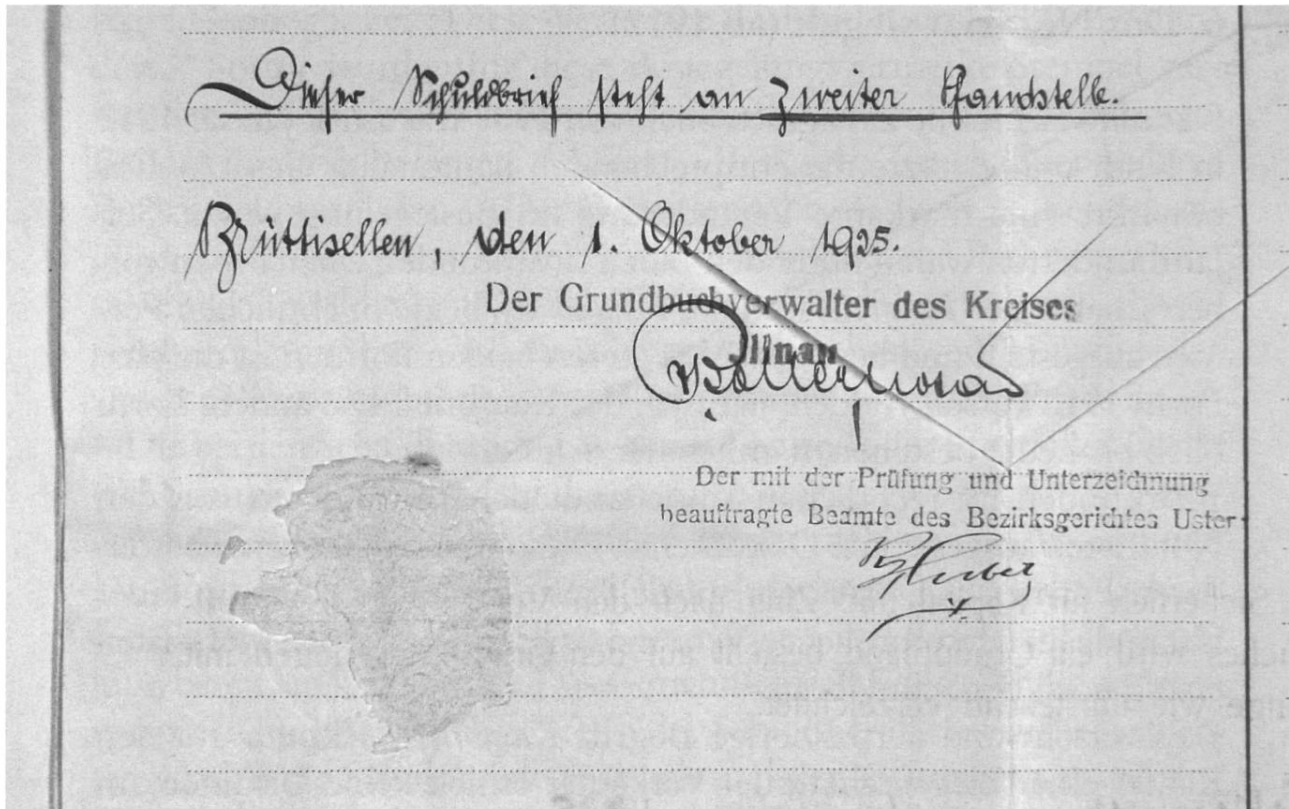 Dieser Schuldbrief steht an zweiter Pfandstelle.
Brüttisellen, den 1. Oktober 1925.
Der Grundbuchverwalter des Kreises
Illnau
Der mit der Prüfung und Unterzeichnung
beauftragte Beamte des Bezirksgerichtes Uster
Huber